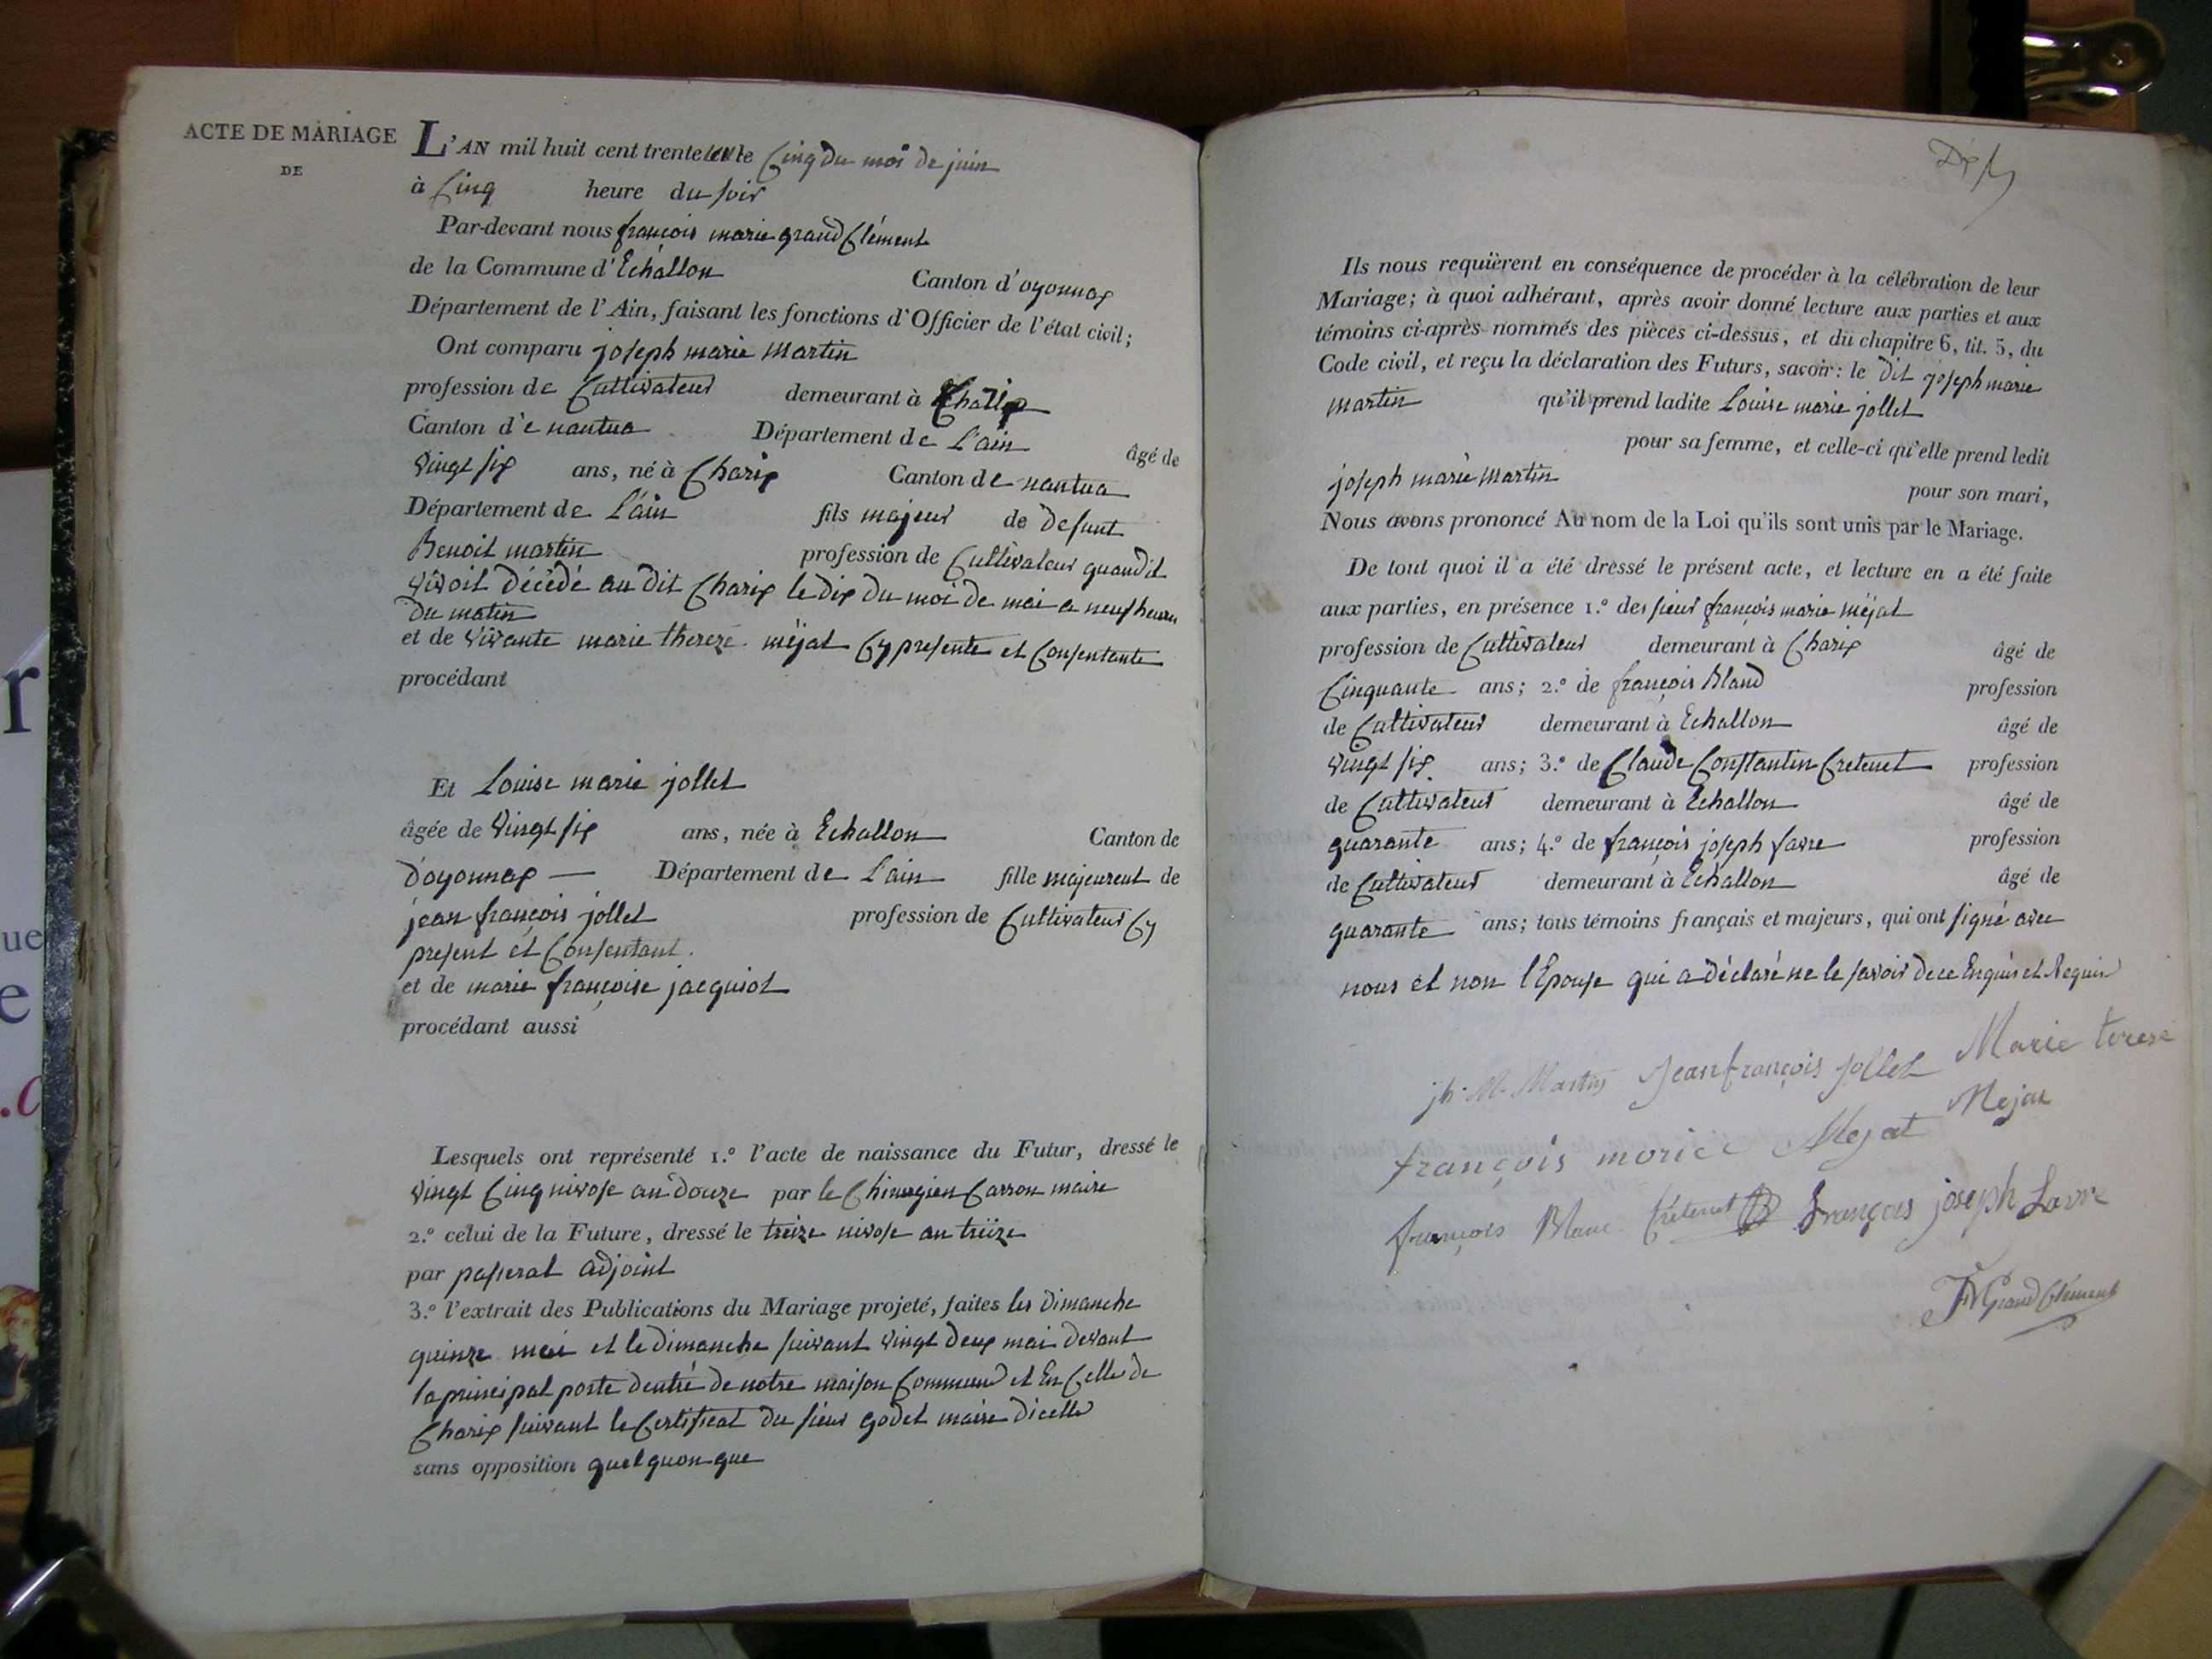 ACTE DE MARIAGE
DE
L'AN mil huit cent trente le Cinq du moi de juin
à Cinq heure du soir
Par-devant nous françois marie grand Clément
de la Commune d'Echallon Canton d'oyonnax
Département de l'Ain, faisant les fonctions d'Officier de l'état civil;
Ont comparu joseph marie Martin
profession de Cultivateur demeurant à
Canton d'e nantua Département de L'ain âgé de
vingt six ans, né à Charix Canton de nantua
Département de L'ain fils majeur de defunt
Benoit martin profession de Cultivateur quand il
vivoit décédé au dit Charix le dix du moi de mai a neuf heures
du matin
et de vivante marie thereze méjat Cy presente et Consentante
procédant
Et Louise marie jollet
âgée de vingt six ans, née à Echallon Canton de
d'oyonnax — Département de L'ain fille majeureut de
jean françois jollet profession de Cultivateur Cy
present et Consentant.
et de marie françoise jacquiot
procédant aussi
Lesquels ont représenté 1.° l'acte de naissance du Futur, dressé le
vingt Cinq nivose an douze par le Chirurgien Carron maire
2.° celui de la Future, dressé le treize nivose an treize
par passerat adjoint
3.° l'extrait des Publications du Mariage projeté, faites les dimanche
quinze mai et le dimanche suivant vingt deux mai devant
la principal porte dentré de notre maison Commune et En Celle de
Charix suivant le Certificat du sieur godet maire dicelle
sans opposition quelquonque
Ils nous requièrent en conséquence de procéder à la célébration de leur
Mariage; à quoi adhérant, après avoir donné lecture aux parties et aux
témoins ci-après nommés des pièces ci-dessus, et du chapitre 6, tit. 5, du
Code civil, et reçu la déclaration des Futurs, savoir: le dit joseph marie
martin qu'il prend ladite Louise marie jollet
pour sa femme, et celle-ci qu'elle prend ledit
joseph marie Martin pour son mari,
Nous avons prononcé Au nom de la Loi qu'ils sont unis par le Mariage.
De tout quoi il a été dressé le présent acte, et lecture en a été faite
aux parties, en présence 1.° des sieur françois marie méjat
profession de Cultivateur demeurant à Charix âgé de
Cinquante ans; 2.° de françois Bland profession
de Cultivateur demeurant à Echallon âgé de
vingt six ans; 3.° de Claude Constantin Cretenet profession
de Cultivateur demeurant à Echallon âgé de
quarante ans; 4.° de françois joseph favre profession
de Cultivateur demeurant à Echallon âgé de
quarante ans; tous témoins français et majeurs, qui ont signé avec
nous et non l'Epouse qui a déclaré ne le savoir de ce Enquis et Requis
jh. M. Martin Jean françois Jollet Marie terese
Mejat
françois morice Mejat
françois Blanc Crétenet françois joseph Favre
FM Grand Clément